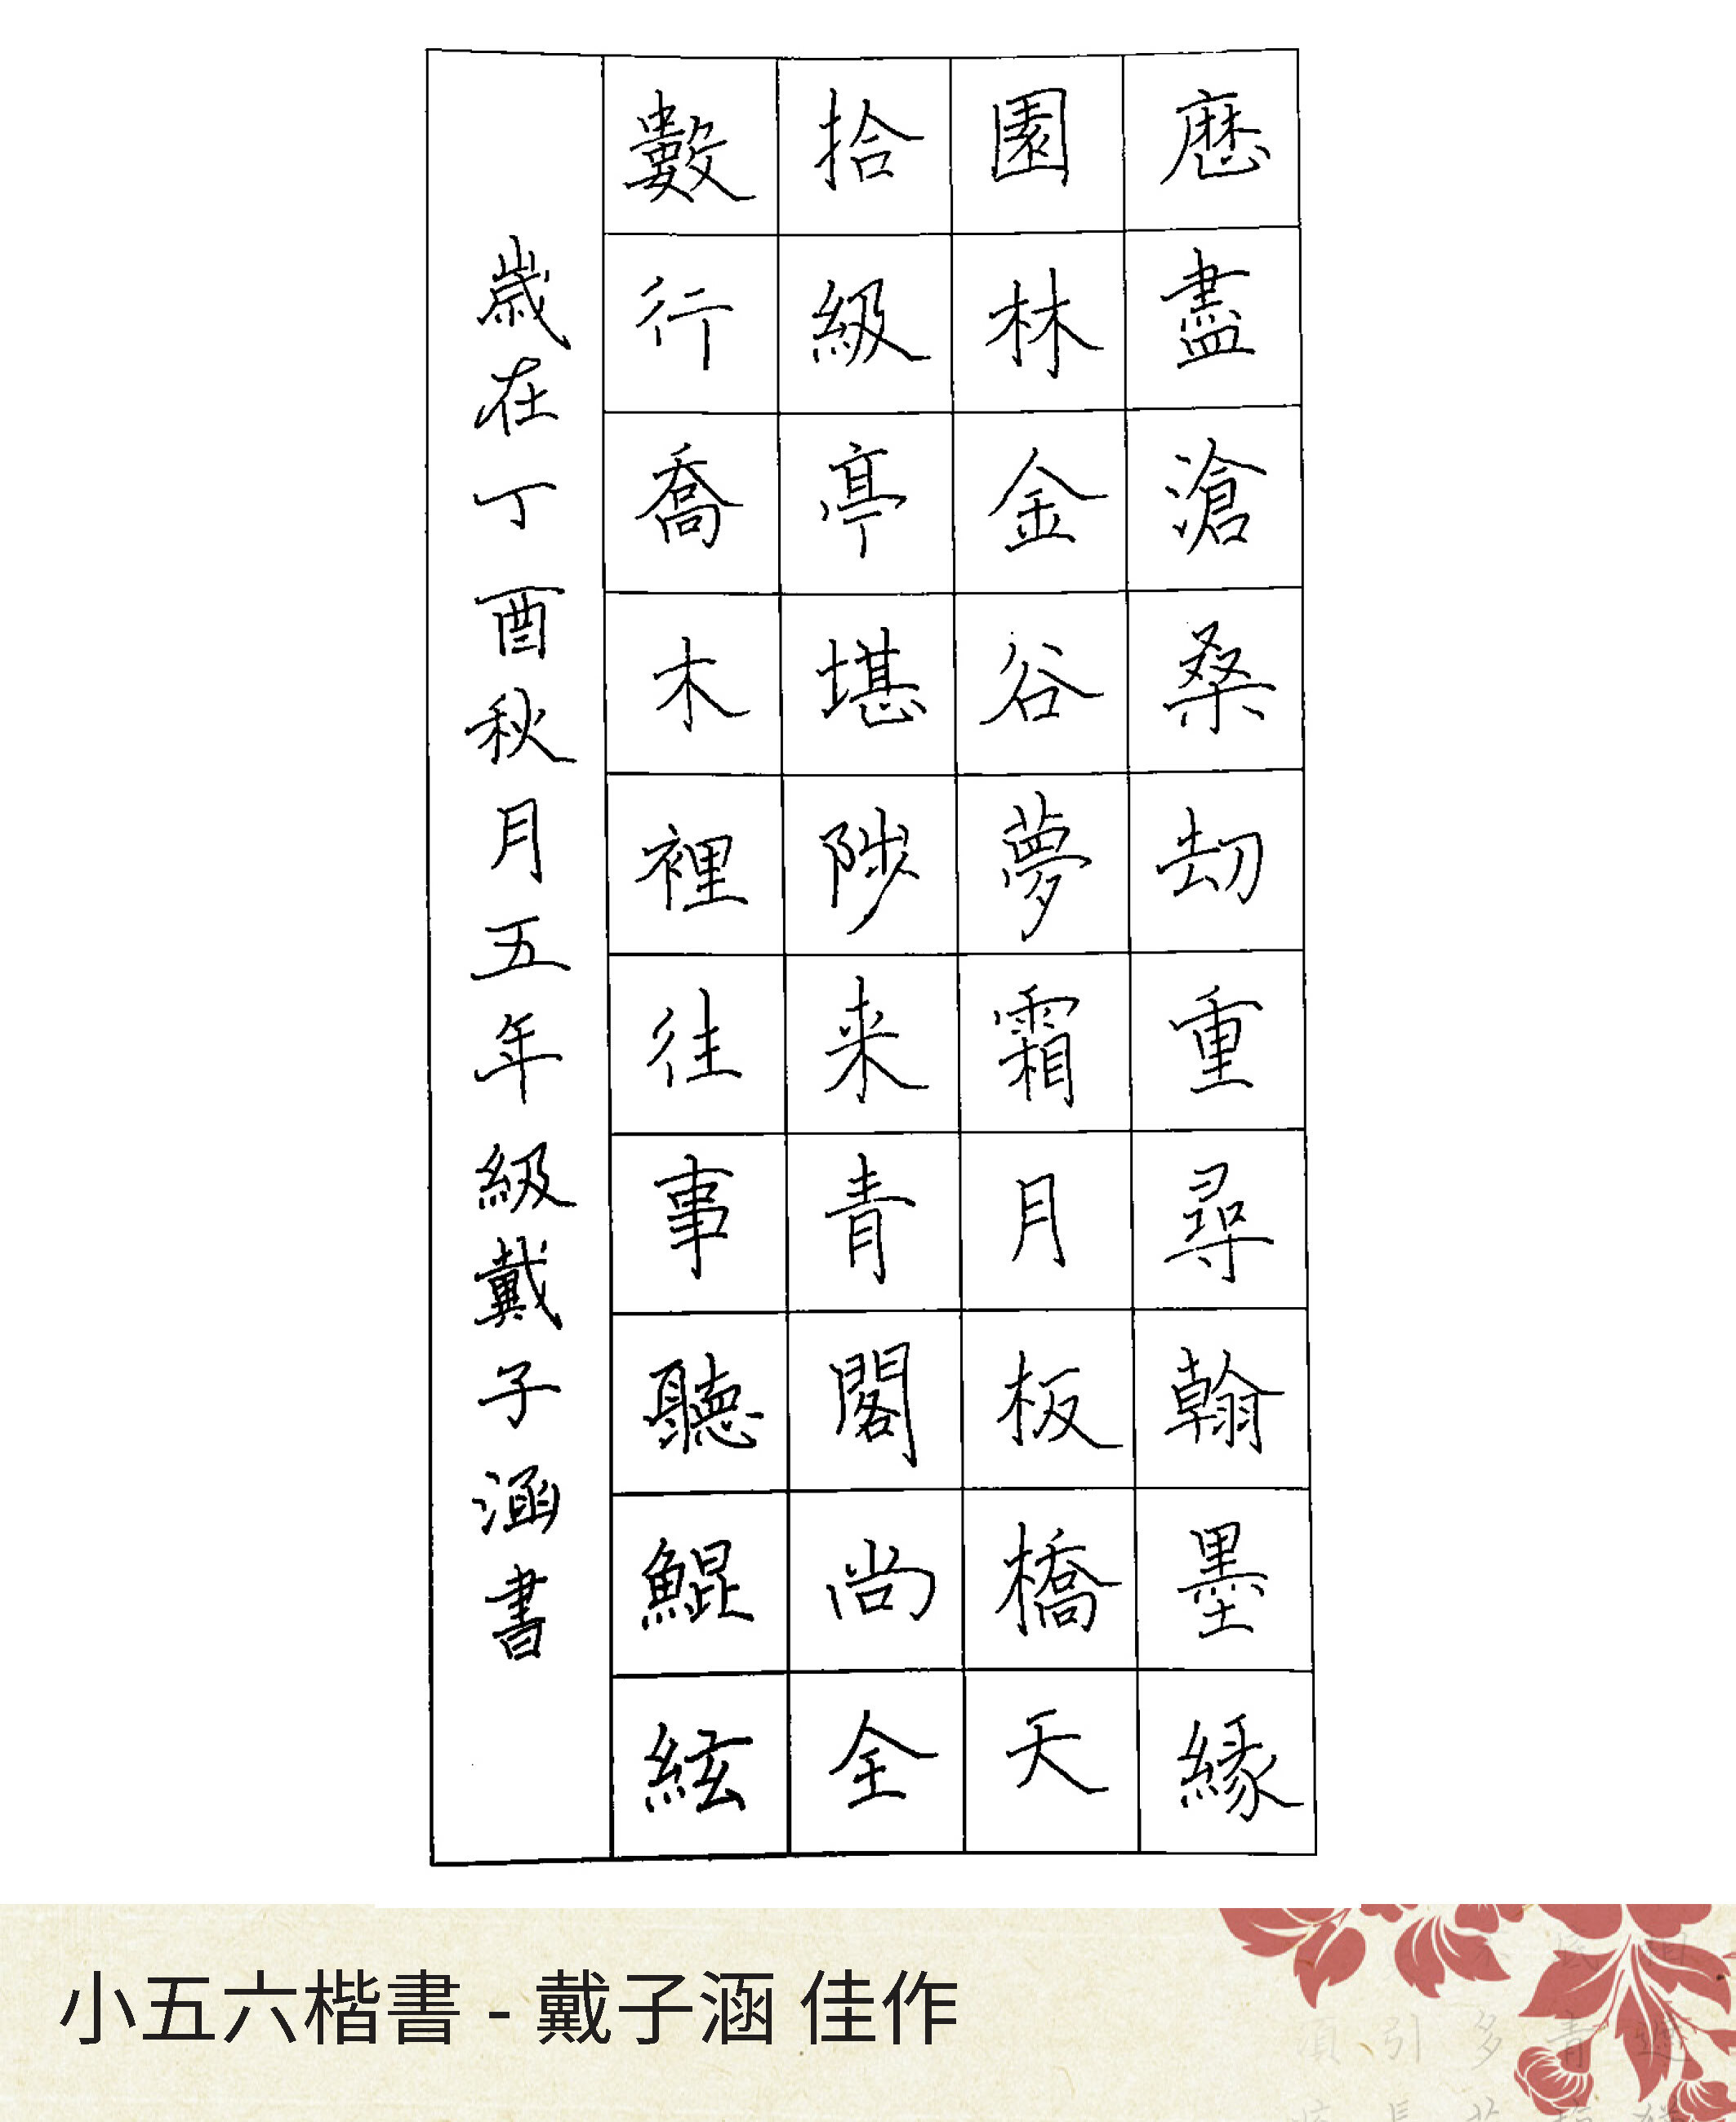 歷盡滄桑劫重尋翰墨緣
園林金谷夢霜月板橋天
拾級亭堪陟来青閣尚全
數行喬木裡往事聽鯤絃
歲在丁酉秋月五年級戴子涵書
小五六楷書 - 戴子涵 佳作